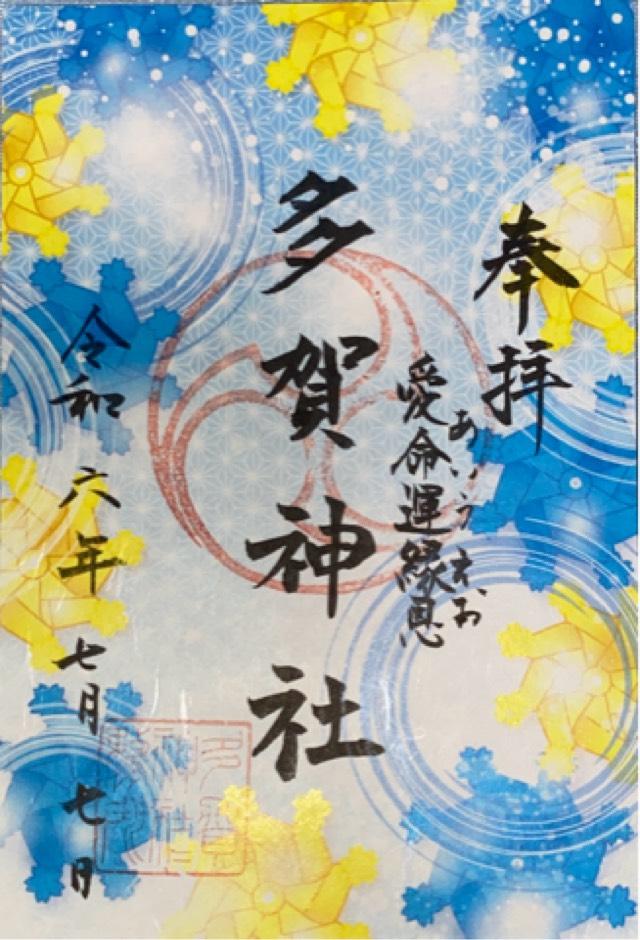 奉拝
愛命運縁恩
あいうえお
多賀神社
令和六年七月七日